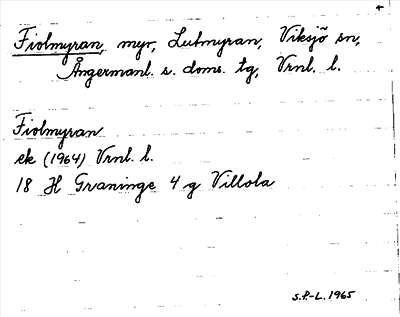 Fiolmyran, myr, Lutmyran, Viksjö sn,
Ångermanl. s. doms. tg, Vrnl. l.
Fiolmyran
ek (1964) Vrnl. l.
18 H Graninge 4 g Villola
S.P.-L. 1965